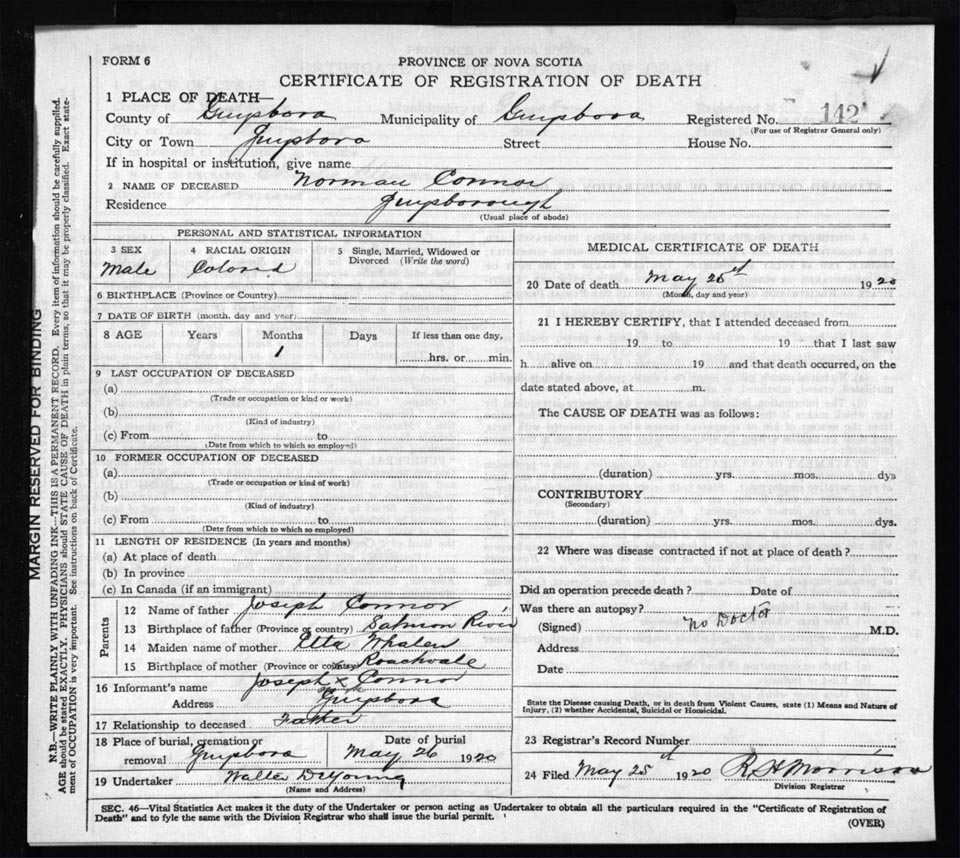 FORM 6
PROVINCE OF NOVA SCOTIA
CERTIFICATE OF REGISTRATION OF DEATH
1 PLACE OF DEATH—
County of Guysboro Municipality of Guysboro Registered No. 142
(For use of Registrar General only)
City or Town Guysboro Street House No.
If in hospital or institution, give name
2 NAME OF DECEASED Norman Connor
Residence Guysborough
(Usual place of abode)
PERSONAL AND STATISTICAL INFORMATION
3 SEX 4 RACIAL ORIGIN 5 Single, Married, Widowed or
Divorced (Write the word)
Male Colored
6 BIRTHPLACE (Province or Country)
7 DATE OF BIRTH (month, day and year)
8 AGE Years Months Days If less than one day,
1
hrs. or min.
9 LAST OCCUPATION OF DECEASED
(a)
(Trade or occupation or kind or work)
(b)
(Kind of industry)
(c) From to
(Date from which to which so employed)
10 FORMER OCCUPATION OF DECEASED
(a)
(Trade or occupation or kind of work)
(b)
(Kind of industry)
(c) From to
(Date from which to which so employed)
11 LENGTH OF RESIDENCE (In years and months)
(a) At place of death
(b) In province
(c) In Canada (if an immigrant)
Parents
12 Name of father Joseph Connor
13 Birthplace of father (Province or country) Salmon River
14 Maiden name of mother Etta Whalen
15 Birthplace of mother (Province or country) Roachvale
16 Informant's name Joseph x Connor
Address Guysboro
17 Relationship to deceased Father
18 Place of burial, cremation or Date of burial
removal Guysboro May 26 1920
19 Undertaker Walter DeYoung
(Name and Address)
MEDICAL CERTIFICATE OF DEATH
20 Date of death May 25 1920
(Month, day and year)
21 I HEREBY CERTIFY, that I attended deceased from
19 to 19 that I last saw
h alive on 19 and that death occurred, on the
date stated above, at m.
The CAUSE OF DEATH was as follows:
(duration) yrs. mos. dys
CONTRIBUTORY
(Secondary)
(duration) yrs. mos. dys.
22 Where was disease contracted if not at place of death?
Did an operation precede death? Date of
Was there an autopsy?
(Signed) No Doctor M.D.
Address
Date
State the Disease causing Death, or in death from Violent Causes, state (1) Means and Nature of
Injury, (2) whether Accidental, Suicidal or Homicidal.
23 Registrar's Record Number
24 Filed May 25 1920 R H Morrison
Division Registrar
SEC. 46—Vital Statistics Act makes it the duty of the Undertaker or person acting as Undertaker to obtain all the particulars required in the "Certificate of Registration of
Death" and to fyle the same with the Division Registrar who shall issue the burial permit.
(OVER)
MARGIN RESERVED FOR BINDING
N.B.—WRITE PLAINLY WITH UNFADING INK—THIS IS A PERMANENT RECORD. Every item of information should be carefully supplied.
AGE should be stated EXACTLY. PHYSICIANS should STATE CAUSE OF DEATH in plain terms, so that it may be properly classified. Exact state-
ment of OCCUPATION is very important. See instructions on back of Certificate.